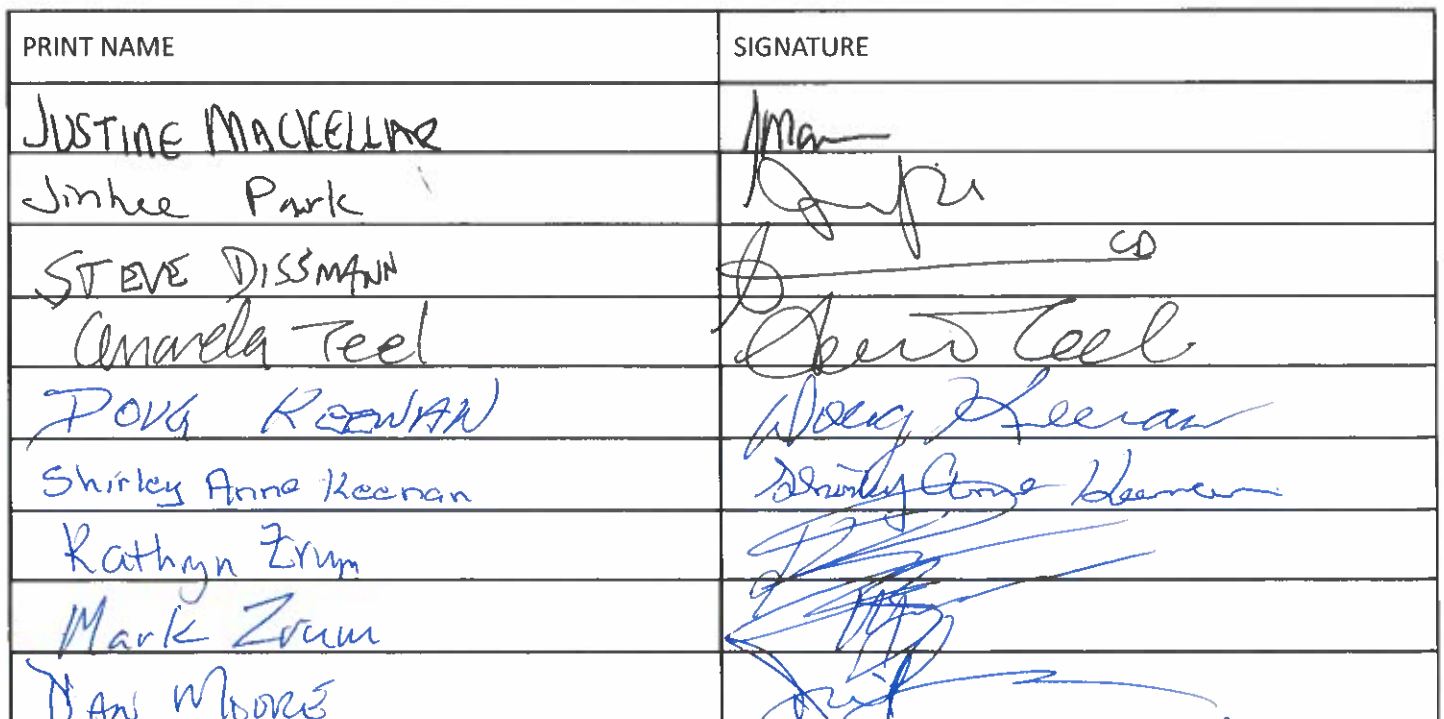 PRINT NAME SIGNATURE
JUSTINE MACKELLAR
Jinhee Park
STEVE DISSMANN CD
Teel Teel
DOUG KEENAN Doug Keenan
Shirley Anne Keenan Shirley Anne Keenan
Kathryn Zrum
Mark Zrum
MOORE